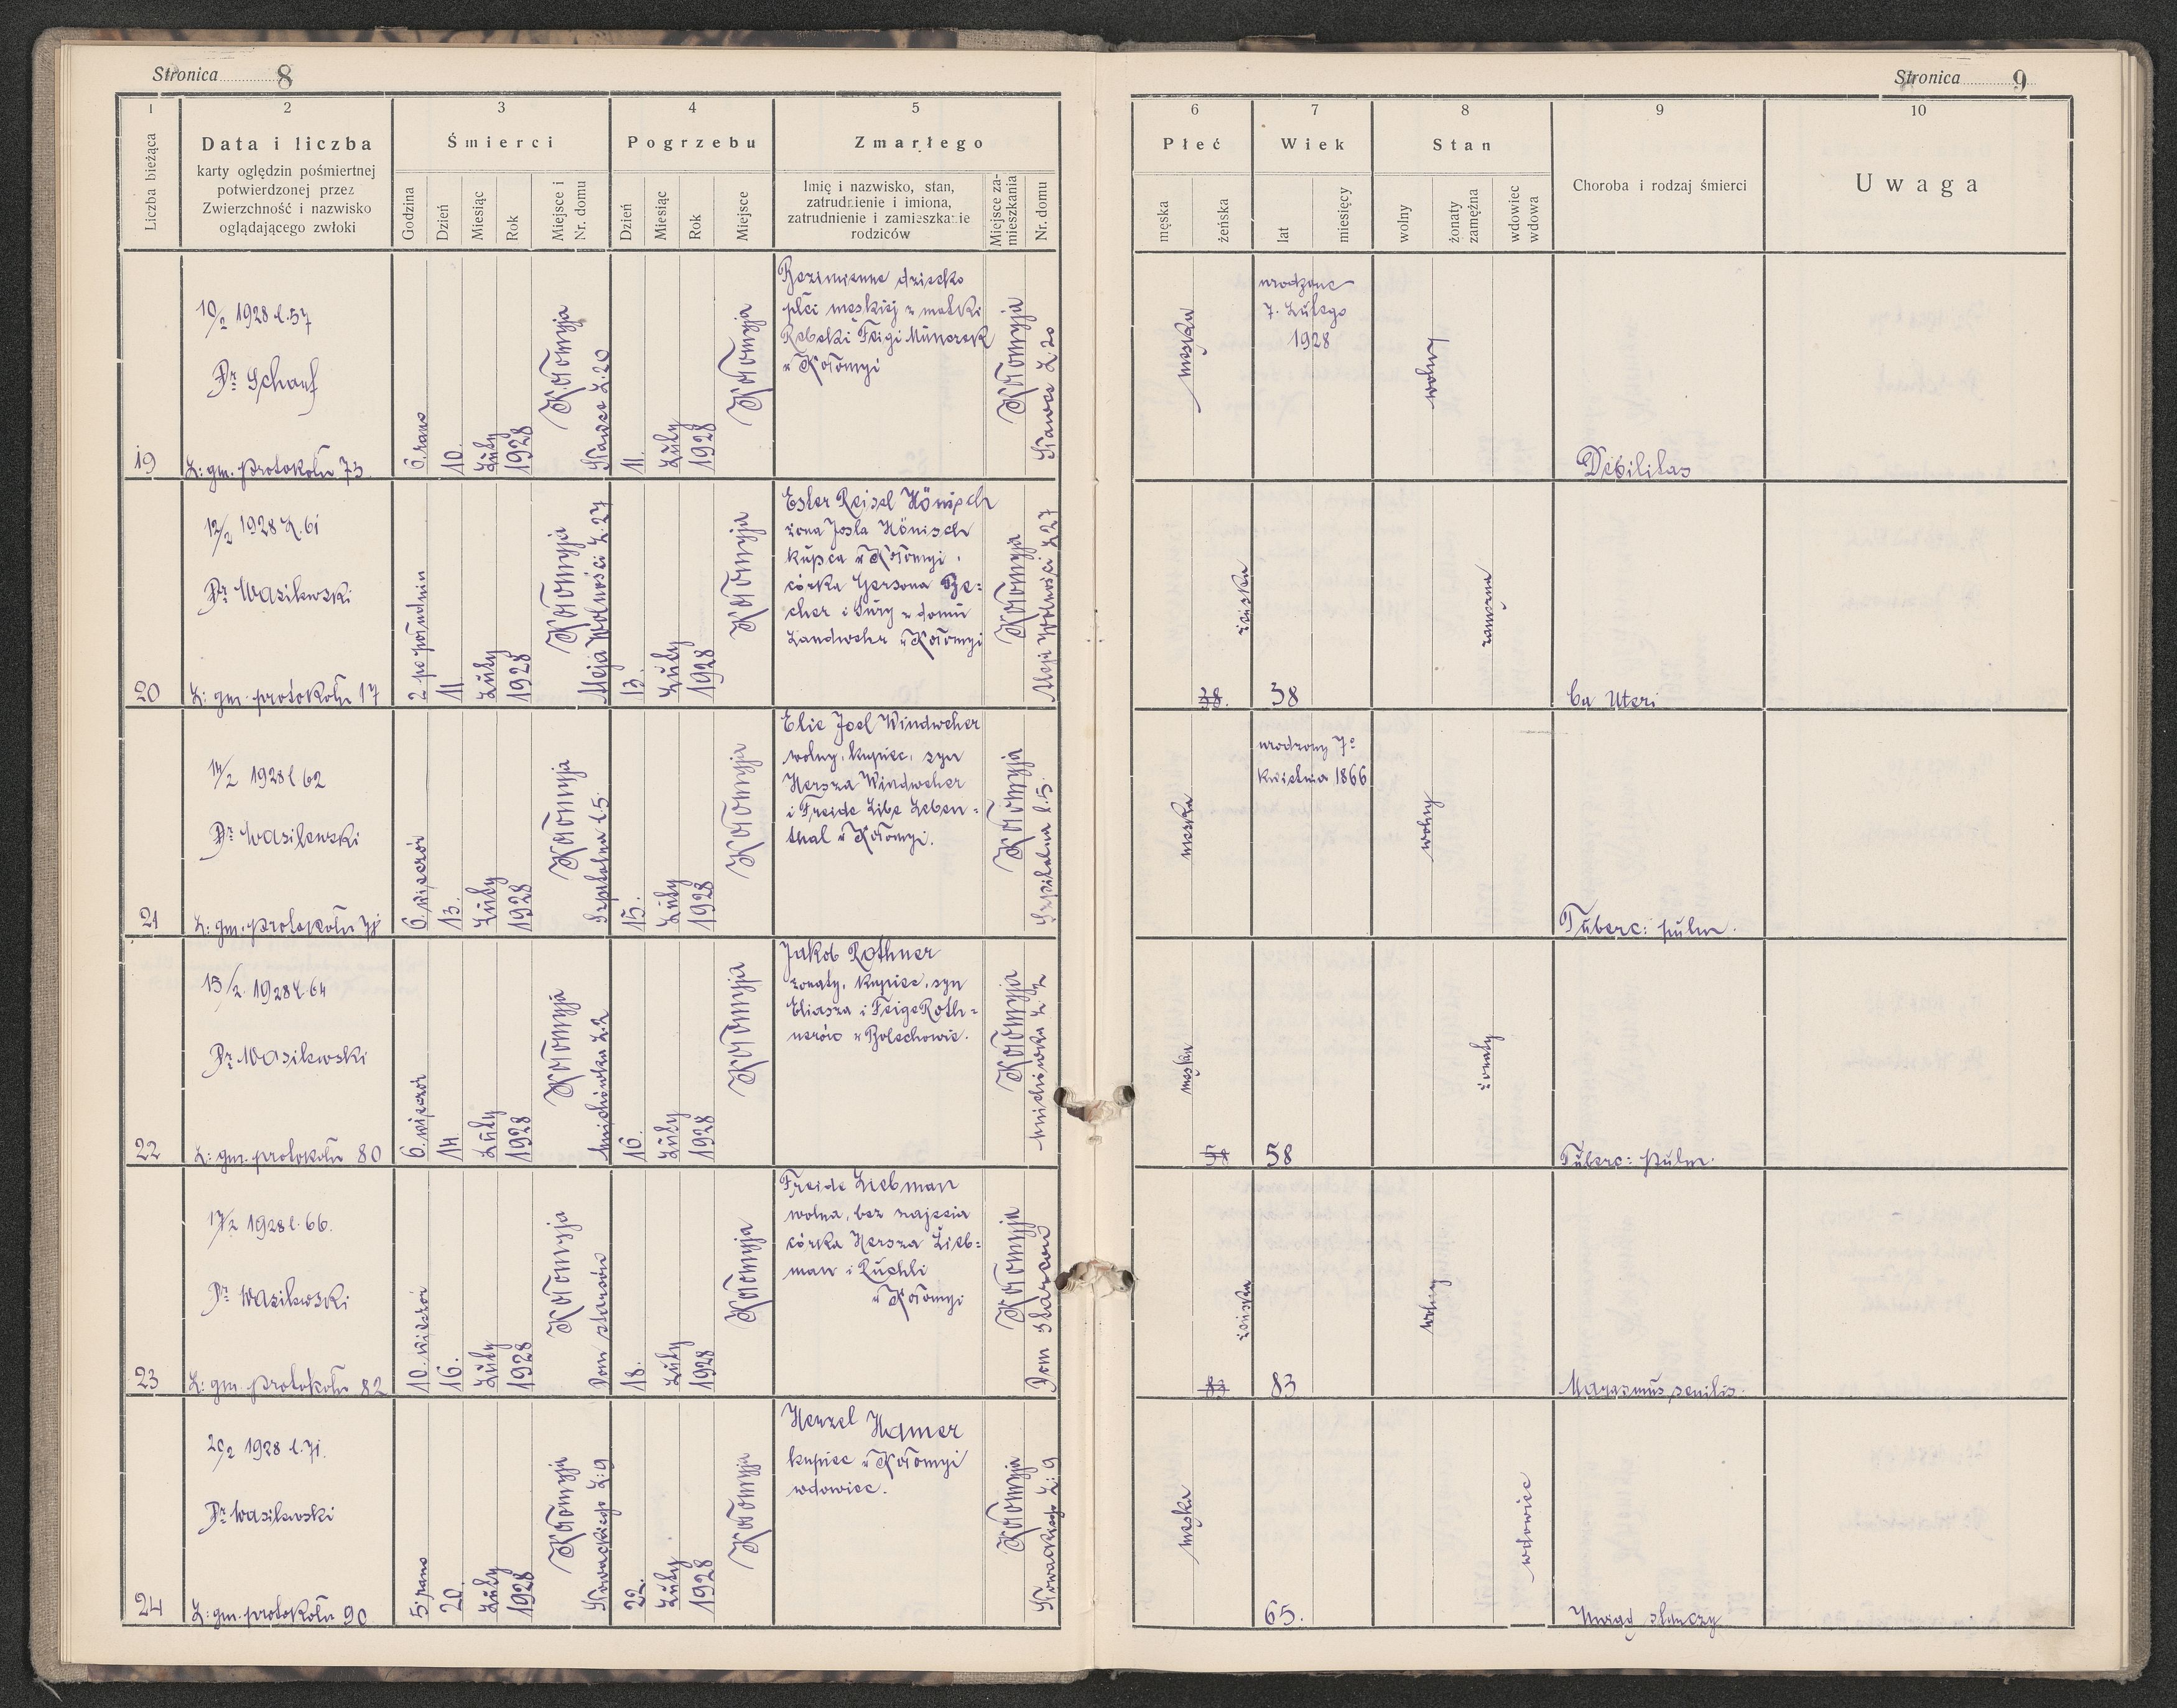 Stronica 8
1
2
3
4
5
Liczba bieżąca
Data i liczba
karty oględzin pośmiertnej
potwierdzonej przez
Zwierzchność i nazwisko
oglądającego zwłoki
Śmierci
Godzina
Dzień
Miesiąc
Rok
Miejsce i
Nr. domu
Pogrzebu
Dzień
Miesiąc
Rok
Miejsce
Zmarłego
Imię i nazwisko, stan,
zatrudnienie i imiona,
zatrudnienie i zamieszkanie
rodziców
Miejsce za-
mieszkania
Nr. domu
19
10/2 1928 l. 57
Dr Scharf
L: gm. protokołu 73
6. rano
10.
Luty
1928
Kołomyja
L. 20
11.
Luty
1928
Kołomyja
Bezimienne dziecko
płci męskiej z matki
Rebeki Feigi
w Kołomyi
Kołomyja
L. 20
20
12/2 1928 L. 61
Dr Wasilewski
L: gm. protokołu 17
2 po południu
11
Luty
1928
Kołomyja
Aleja Wolności L. 27
13.
Luty
1928
Kołomyja
Ester Reisel Hönisch
żona Josla Hönisch
kupca w Kołomyi,
córka Gersona Be=
cher i Sury z domu
Landwehr w Kołomyi
Kołomyja
Aleja Wolności L 27
21
14/2 1928 l 62
Dr Wasilewski
L: gm. protokołu
6. wieczór
13.
Luty
1928
Kołomyja
Szpitalna l. 5.
15.
Luty
1928
Kołomyja
Elie Joel Windweher
wolny, kupiec, syn
Hersza Windweher
i Freide Libe Leben=
thal w Kołomyi.
Kołomyja
Szpitalna l. 5.
22
15/2. 1928 l. 64
Dr Wasilewski
L: gm. protokołu 80
6. wieczór
14
Luty
1928
Kołomyja
L. 2
16.
Luty
1928
Kołomyja
Jakob Rothner
żonaty, kupiec, syn
Eliasza i Feige Roth=
nerów w Bolechowie.
Kołomyja
L. 2
23
17/2 1928 l. 66.
Dr Wasilewski
L: gm. protokołu 82
10. wieczór
16.
Luty
1928
Kołomyja
Dom starców
18.
Luty
1928
Kołomyja
Freide Liebman
wolna, bez zajęcia
córka Hersza Lieb=
man i Ruchli
w Kołomyi
Kołomyja
Dom starców
24
20/2 1928 l. 71.
Dr Wasilewski
L: gm. protokołu 90
5. rano
20.
Luty
1928
Kołomyja
Słowackiego L: 9
22.
Luty
1928
Kołomyja
Henzel Hamer
kupiec w Kołomyi
wdowiec.
Kołomyja
Słowackiego L: 9
Stronica 9
6
7
8
9
10
Płeć
męska
żeńska
Wiek
lat
miesięcy
Stan
wolny
żonaty
zamężna
wdowiec
wdowa
Choroba i rodzaj śmierci
Uwaga
męska
urodzone
7. Lutego
1928
wolny
Debilitas
żeńska
38.
38
zamężna
Ca Uteri
męska
urodzony 7o
kwietnia 1866
wolny
Tuberc: pulm.
męska
58
58
żonaty
Tuberc: pulm.
żeńska
83
83
wolny
Marasmus senilis.
męska
65.
wdowiec
Uwiąd starczy